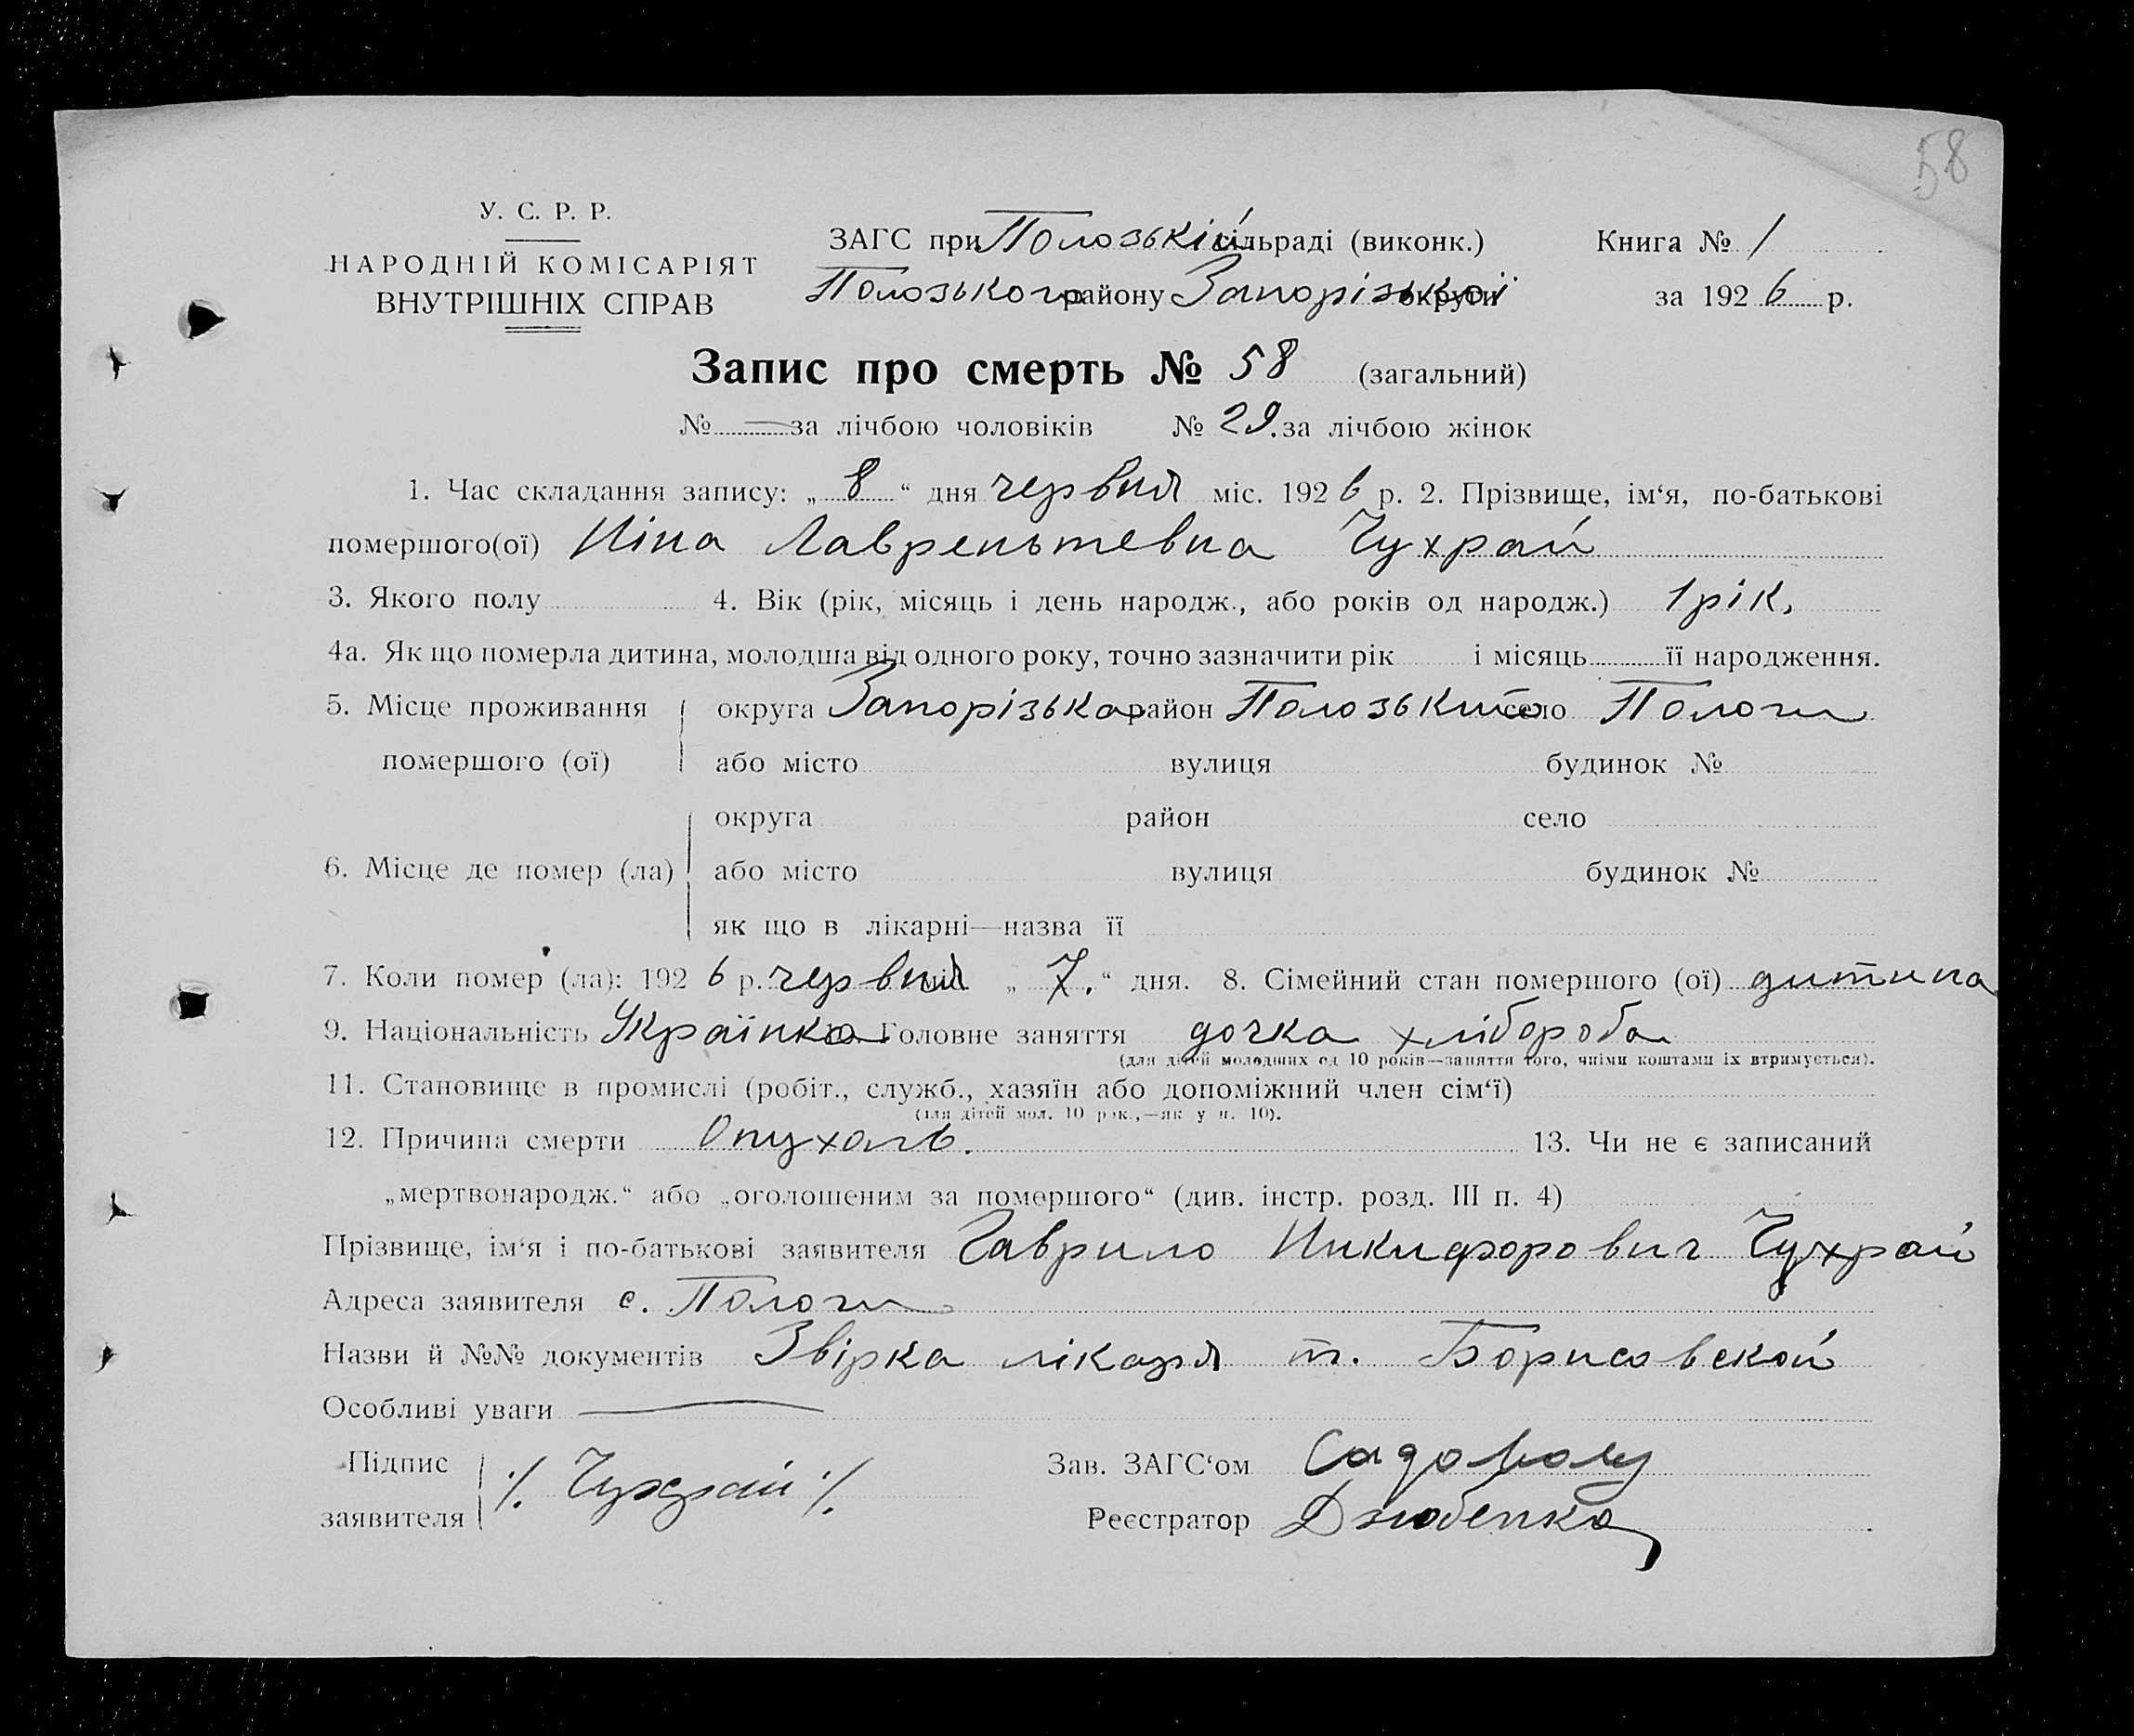 58
У. С. Р. Р.
НАРОДНІЙ КОМІСАРІЯТ
ВНУТРІШНІХ СПРАВ
ЗАГС при Полозькій сільраді (виконк.)
Полозького району Запорізької округи
Книга № 1
за 1926 р.
Запис про смерть № 58 (загальний)
№ — за лічбою чоловіків № 29. за лічбою жінок
1. Час складання запису: „ 8 “ дня червня міс. 1926 р. 2. Прізвище, ім‘я, по-батькові
помершого(ої) Ніна Лаврентьевна Чухрай
3. Якого полу 4. Вік (рік, місяць і день народж., або років од народж.) 1 рік,
4а. Як що померла дитина, молодша від одного року, точно зазначити рік і місяць її народження.
5. Місце проживання округа Запорізька район Полозький село Пологи
помершого (ої) або місто вулиця будинок №
округа район село
6. Місце де помер (ла) або місто вулиця будинок №
як що в лікарні—назва її
7. Коли помер (ла): 1926 р. червня „ 7. “ дня. 8. Сімейний стан помершого (ої) дитина
9. Національність Українка Головне заняття дочка хлібороба
(для дітей молодших од 10 років—заняття того, чиїми коштами їх втримується).
11. Становище в промислі (робіт., служб., хазяїн або допоміжний член сім‘ї)
(для дітей мол. 10 рок.,—як у п. 10).
12. Причина смерти Опухоль. 13. Чи не є записаний
„мертвонародж.“ або „оголошеним за помершого“ (див. інстр. розд. III п. 4)
Прізвище, ім‘я і по-батькові заявителя Гаврило Никифорович Чухрай
Адреса заявителя с. Пологи
Назви й №№ документів Звірка лікаря т. Борисовской
Особливі уваги —
Підпис
заявителя ./. Чухрай ./.
Зав. ЗАГС‘ом
Реєстратор Дзюбенко